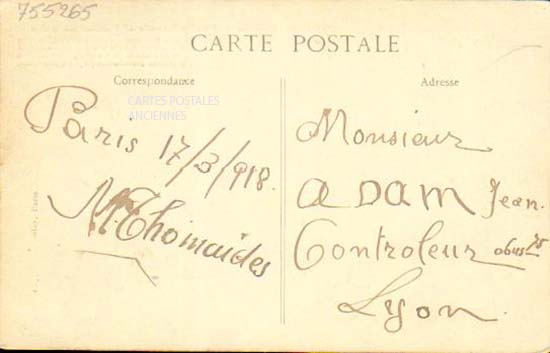 755265
CARTE POSTALE
Correspondance
Adresse
CARTES POSTALES
ANCIENNES
Paris 17/3/918.
M. Thomaïdes
Monsieur
ADAM Jean.
Controleur obus 75
Lyon.